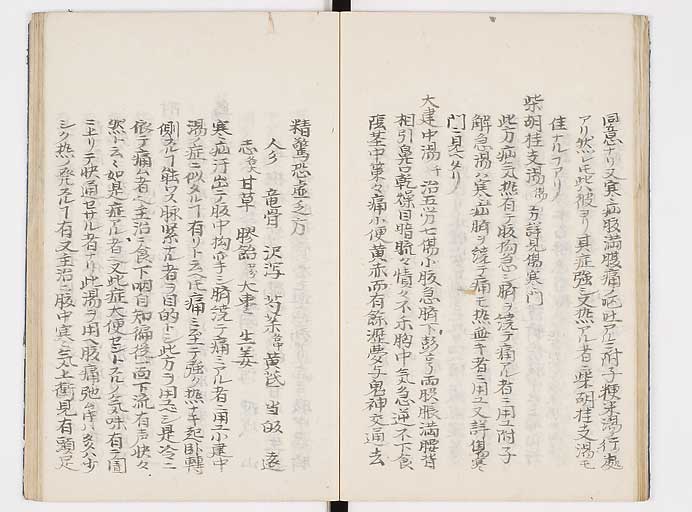 同意ナリ又寒疝腹満腹痛シ吐アルニ附子粳米湯行ク處
アリ然レ𪜈此ハ彼ヨリ其症強シ又熱アル者ニ柴胡桂支湯モ
佳ナルヿアリ
柴胡桂支湯 方詳見傷寒門
此方疝気熱有テ腹拘急シ臍ヲ繞テ痛ム者ニ用ユ附子
解急湯ハ寒疝臍ヲ繞テ痛モ熱無キ者ニ用ユ又詳傷寒
門ニ見ヘタリ
大建中湯 千 治五労七傷小腹急臍下彭亨両脇脹満腰脊
相引鼻口乾燥目暗𥆨々憒々不楽胸中気急逆不下食
陰茎中策々痛小便黄赤而有餘瀝夢与鬼神交通去
精驚恐虚乏方
人参 竜骨 沢瀉 芍薬 黄茋 当皈 遠
志 甘草 膠飴 大棗 生姜
寒疝汗出テ腹中拘攣シ臍繞テ痛ミアル者ニ用ユ小建中
湯ノ症ニ似タルヿ有リト云ヘ𪜈痛ミ至テ強ク熱ナキ起臥轉
側スルヿ能ワス脉緊ナル者ヲ目的トシ此方ヲ用ベシ是冷ニ
依テ痛ム者也主治ニ食下咽自知偏後一面下流有声快々
然ト云如是症アル者也又此症大便セントスルノ気味有テ圊
ニ上リテ快通セサル者ナリ此湯ヲ用ヘ腹痛弛
シク熱ノ発スルヿ有又主治ニ腹中寒シ気上衝見有頭足